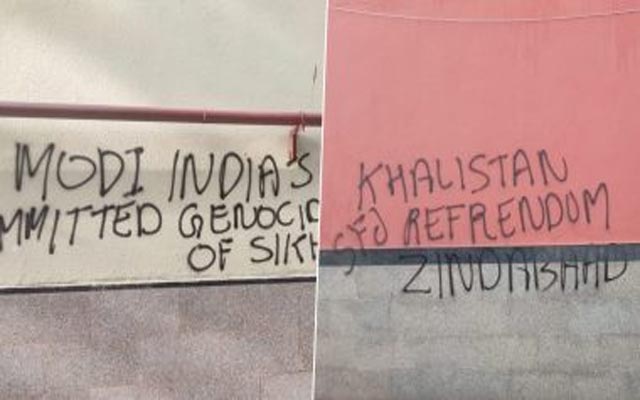 MODI INDIA'S
MMITTED GENOCID
OF SIKH
KHALISTAN
SFJ REFRENDUM
ZINDABAAD